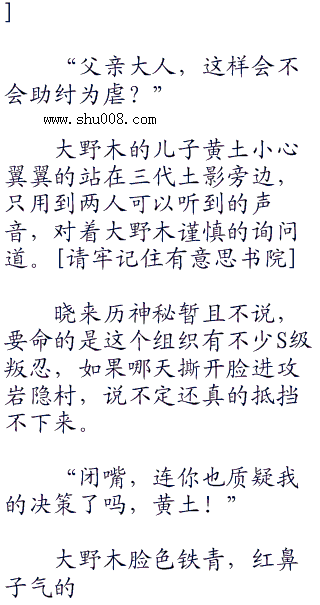 ]
“父亲大人，这样会不
会助纣为虐？”
www.shu008.com
大野木的儿子黄土小心
翼翼的站在三代土影旁边，
只用到两人可以听到的声
音，对着大野木谨慎的询问
道。[请牢记住有意思书院]
晓来历神秘暂且不说，
要命的是这个组织有不少S级
叛忍，如果哪天撕开脸进攻
岩隐村，说不定还真的抵挡
不下来。
“闭嘴，连你也质疑我
的决策了吗，黄土！”
大野木脸色铁青，红鼻
子气的